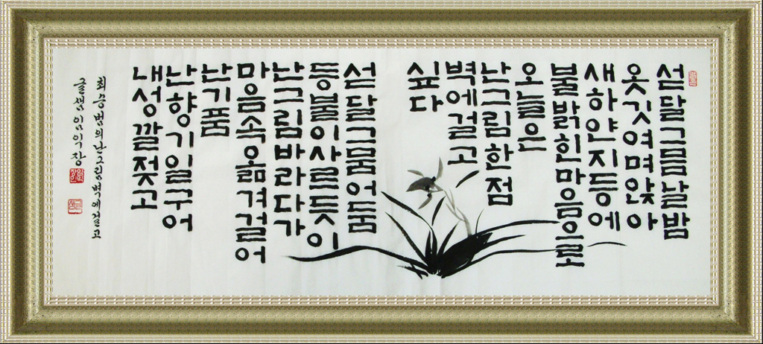 섣달그믐날밤
옷깃여며앉아
새하얀지등에
불밝힌마음으로
오늘은
난그림한점
벽에걸고
싶다
섣달그믐어둠
등불이사르듯이
난그림바라다가
마음속옮겨걸어
난기품
난향기일구어
내성깔젖고
최승범의난그림벽에걸고
글샘임익장